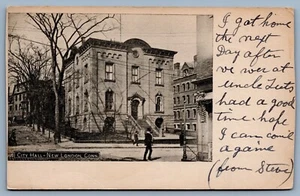 I got home
the next
Day after
we wer at
uncle
had a good
time hope
I can come
againe
(from Steve)
CITY HALL - NEW LONDON, CONN.